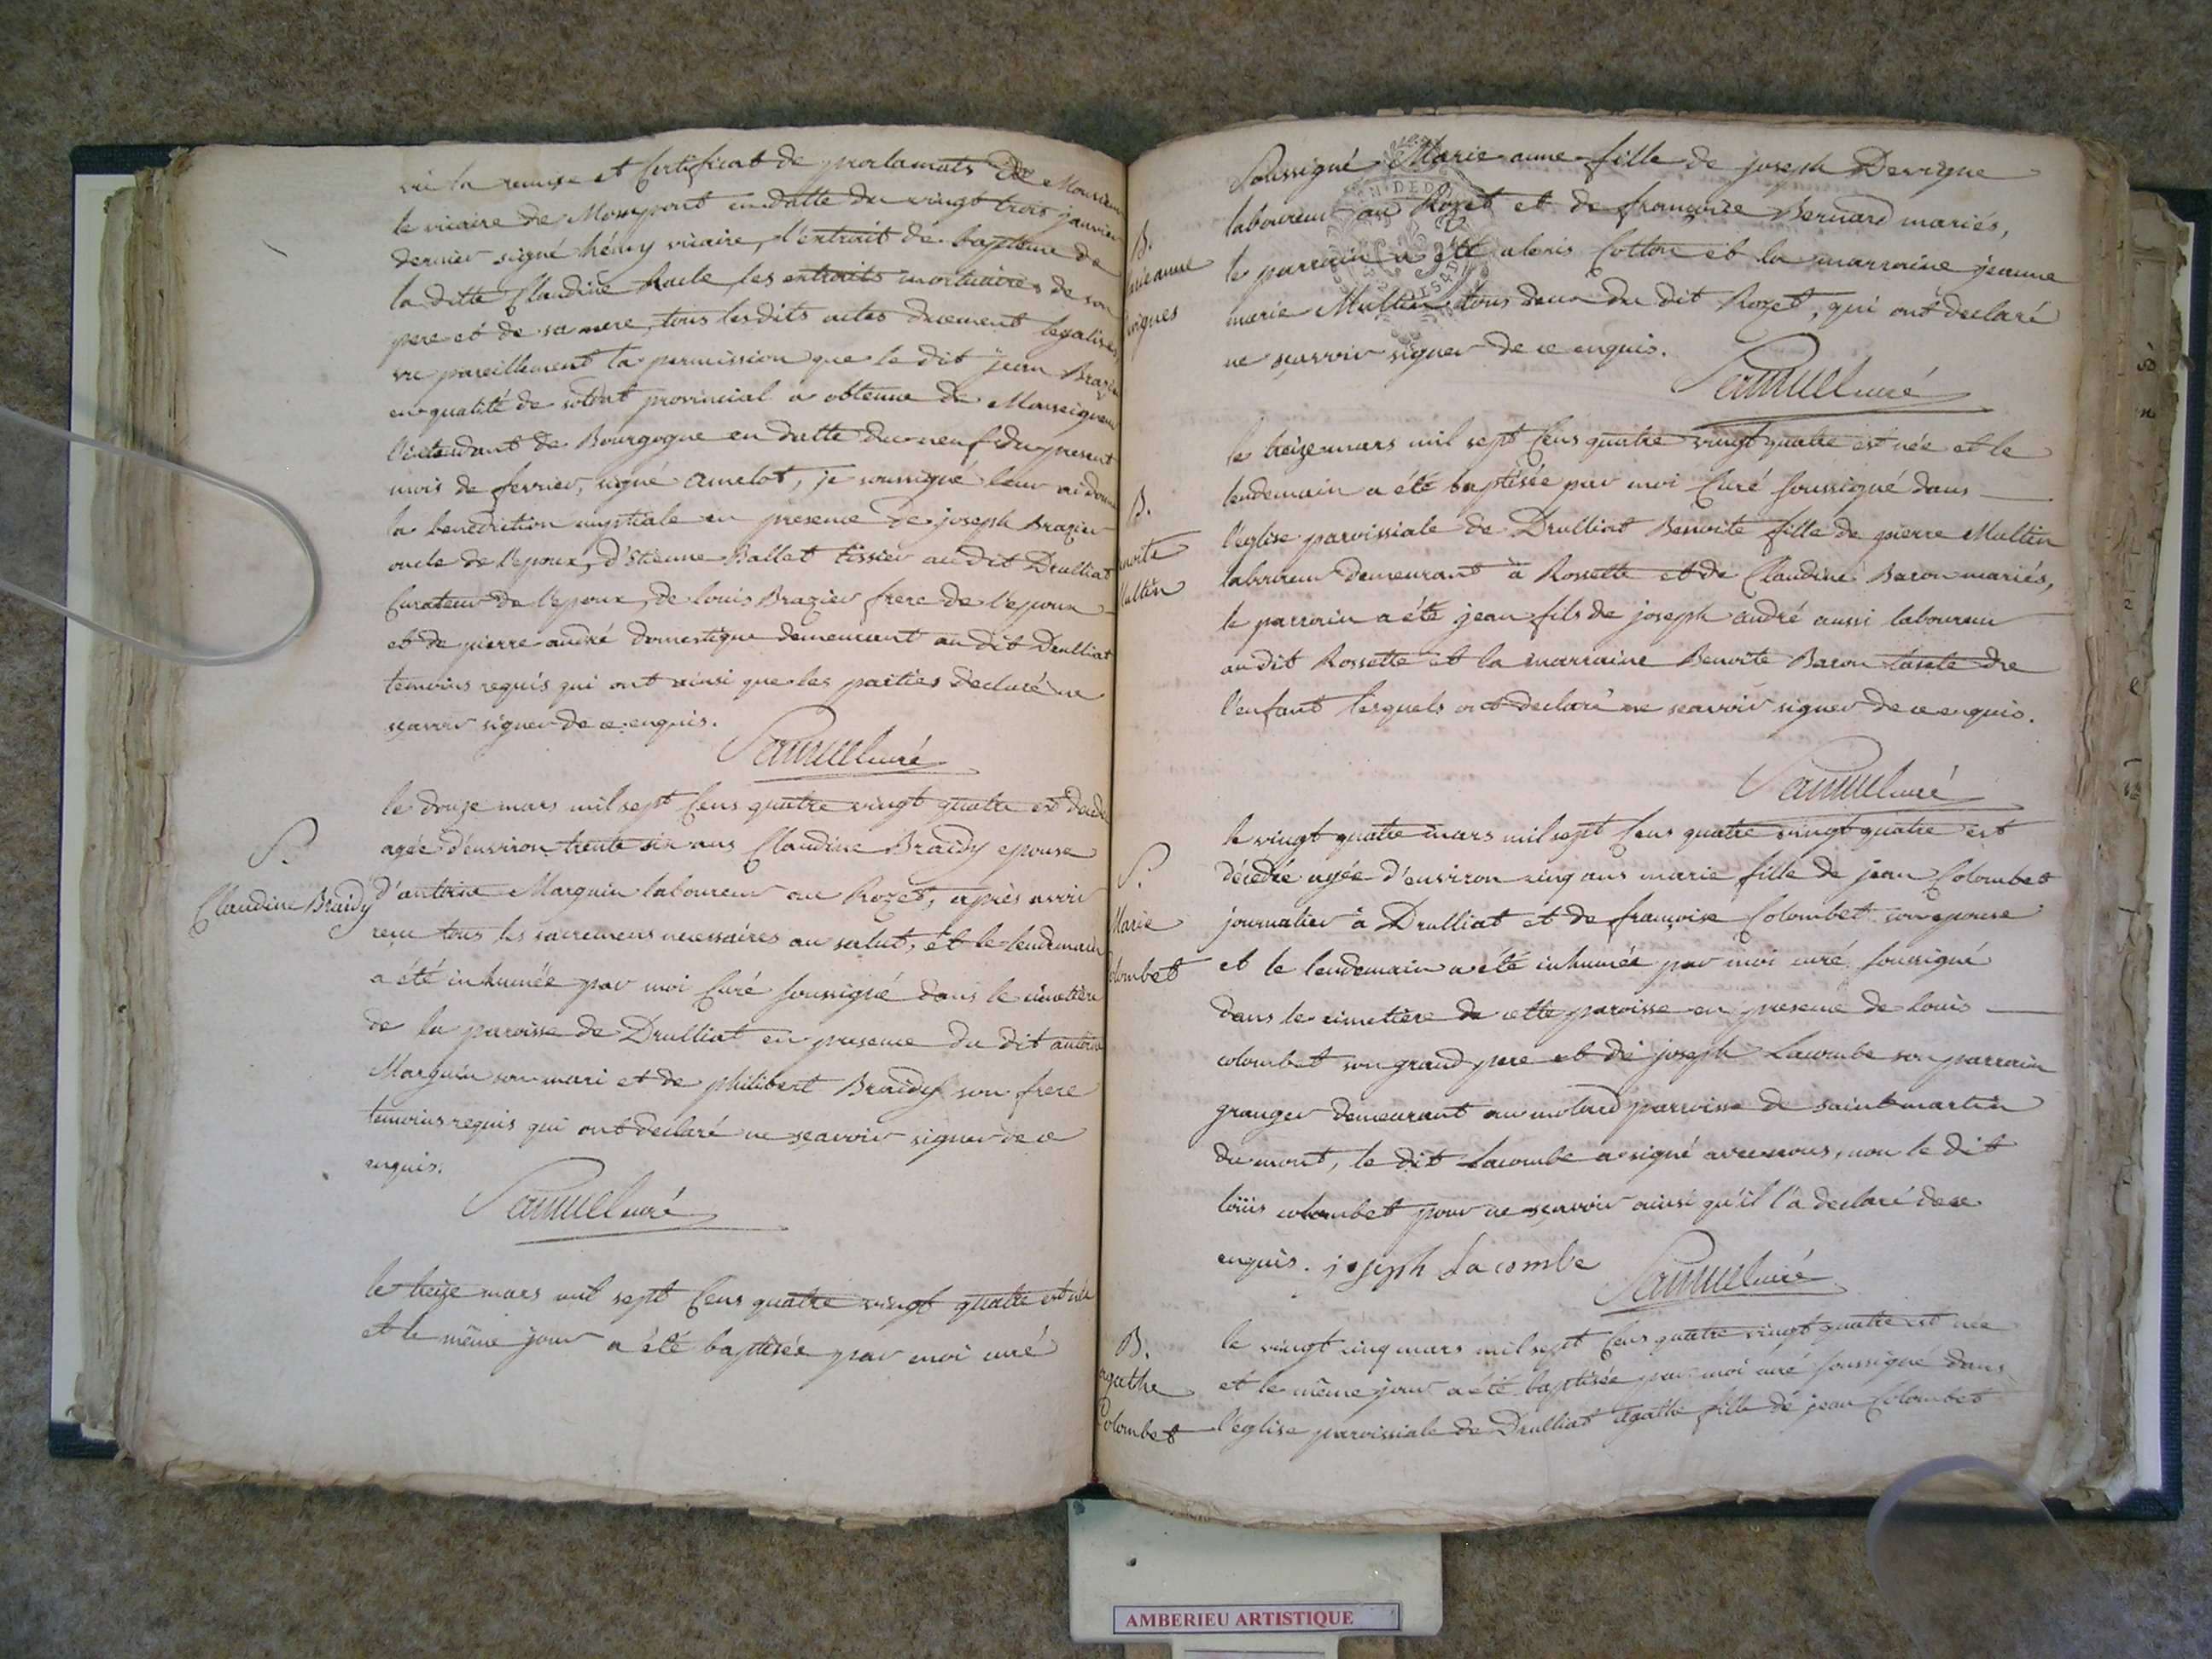 vu la remise et Certificat de proclamats de Monsieur
le vicaire de Montpont en datte du vingt trois janvier
dernier signé hémy vicaire, l'extrait de baptême de
la ditte Claudine Racle les extraits mortuaires de son
pere et de sa mere, tous lesdits actes duement legalisés
vu pareillement la permission que le dit jean Brazier
en qualité de soldat provincial a obtenue de Monseigneur
l'intendant de Bourgogne en datte du neuf du present
mois de fevrier, signé amelot, je soussigné leur ai donné
la benediction nuptiale en presence de joseph Brazier
oncle de l'epoux, d'Etienne Ballet tissier au dit Drulliat
Curateur de l'epoux, de louis Brazier frere de l'epoux
et de pierre andré domestique demeurant au dit Drulliat
temoins requis qui ont ainsi que les parties declaré ne
sçavoir signer de ce enquis.
Samuel curé
le douze mars mil sept Cens quatre vingt quatre est decedée
S.
agée d'environ trente six ans Claudine Braidy epouse
Claudine Braidy
d'antoine Marguin laboureur au Rozet, après avoir
reçu tous les sacremens necessaires au salut, et le lendemain
a été inhumée par moi Curé soussigné dans le cimetiere
de la paroisse de Drulliat en presence du dit antoine
Marguin son mari et de philibert Braidy son frere
temoins requis qui ont declaré ne sçavoir signer de ce
enquis.
Samuel curé
le treize mars mil sept Cens quatre vingt quatre est née
et le même jour a été baptisée par moi curé
Soussigné Marie anne fille de joseph Devigne
B.
laboureur au Rozet et de françoise Bernard mariés,
arie anne
le parrain a été alexis Cotton et la marraine jeanne
vignes
marie Multin tous deux du dit Rozet, qui ont declaré
ne sçavoir signer de ce enquis.
Samuel curé
le treize mars mil sept Cens quatre vingt quatre est née et le
B.
lendemain a été baptisée par moi Curé soussigné dans
l'eglise paroissiale de Drulliat Benoite fille de pierre Multin
noite
Multin
laboureur demeurant à Rossette et de Claudine Baron mariés,
le parrain a été jean fils de joseph andré aussi laboureur
au dit Rossette et la marraine Benoite Baron tante de
l'enfant lesquels ont declaré ne sçavoir signer de ce enquis.
Samuel curé
le vingt quatre mars mil sept Cens quatre vingt quatre est
S.
décedée agée d'environ cinq ans marie fille de jean Colombet
Marie
journalier à Drulliat et de françoise Colombet son epouse
olombet
et le lendemain a été inhumée par moi curé soussigné
dans le cimetière de cette paroisse en presence de Louis
colombet son grand pere et de joseph Lacombe son parrain
granger demeurant au molard parroisse de saint martin
du mont, le dit Lacombe a signé avec nous, non le dit
loüis colombet pour ne sçavoir ainsi qu'il l'a declaré de ce
enquis. joseph Lacombe
Samuel curé
B.
le vingt cinq mars mil sept Cens quatre vingt quatre est née
agathe
et le même jour a été baptisée par moi curé soussigné dans
Colombet
l'eglise paroissiale de Drulliat agathe fille de jean Colombet
AMBERIEU ARTISTIQUE